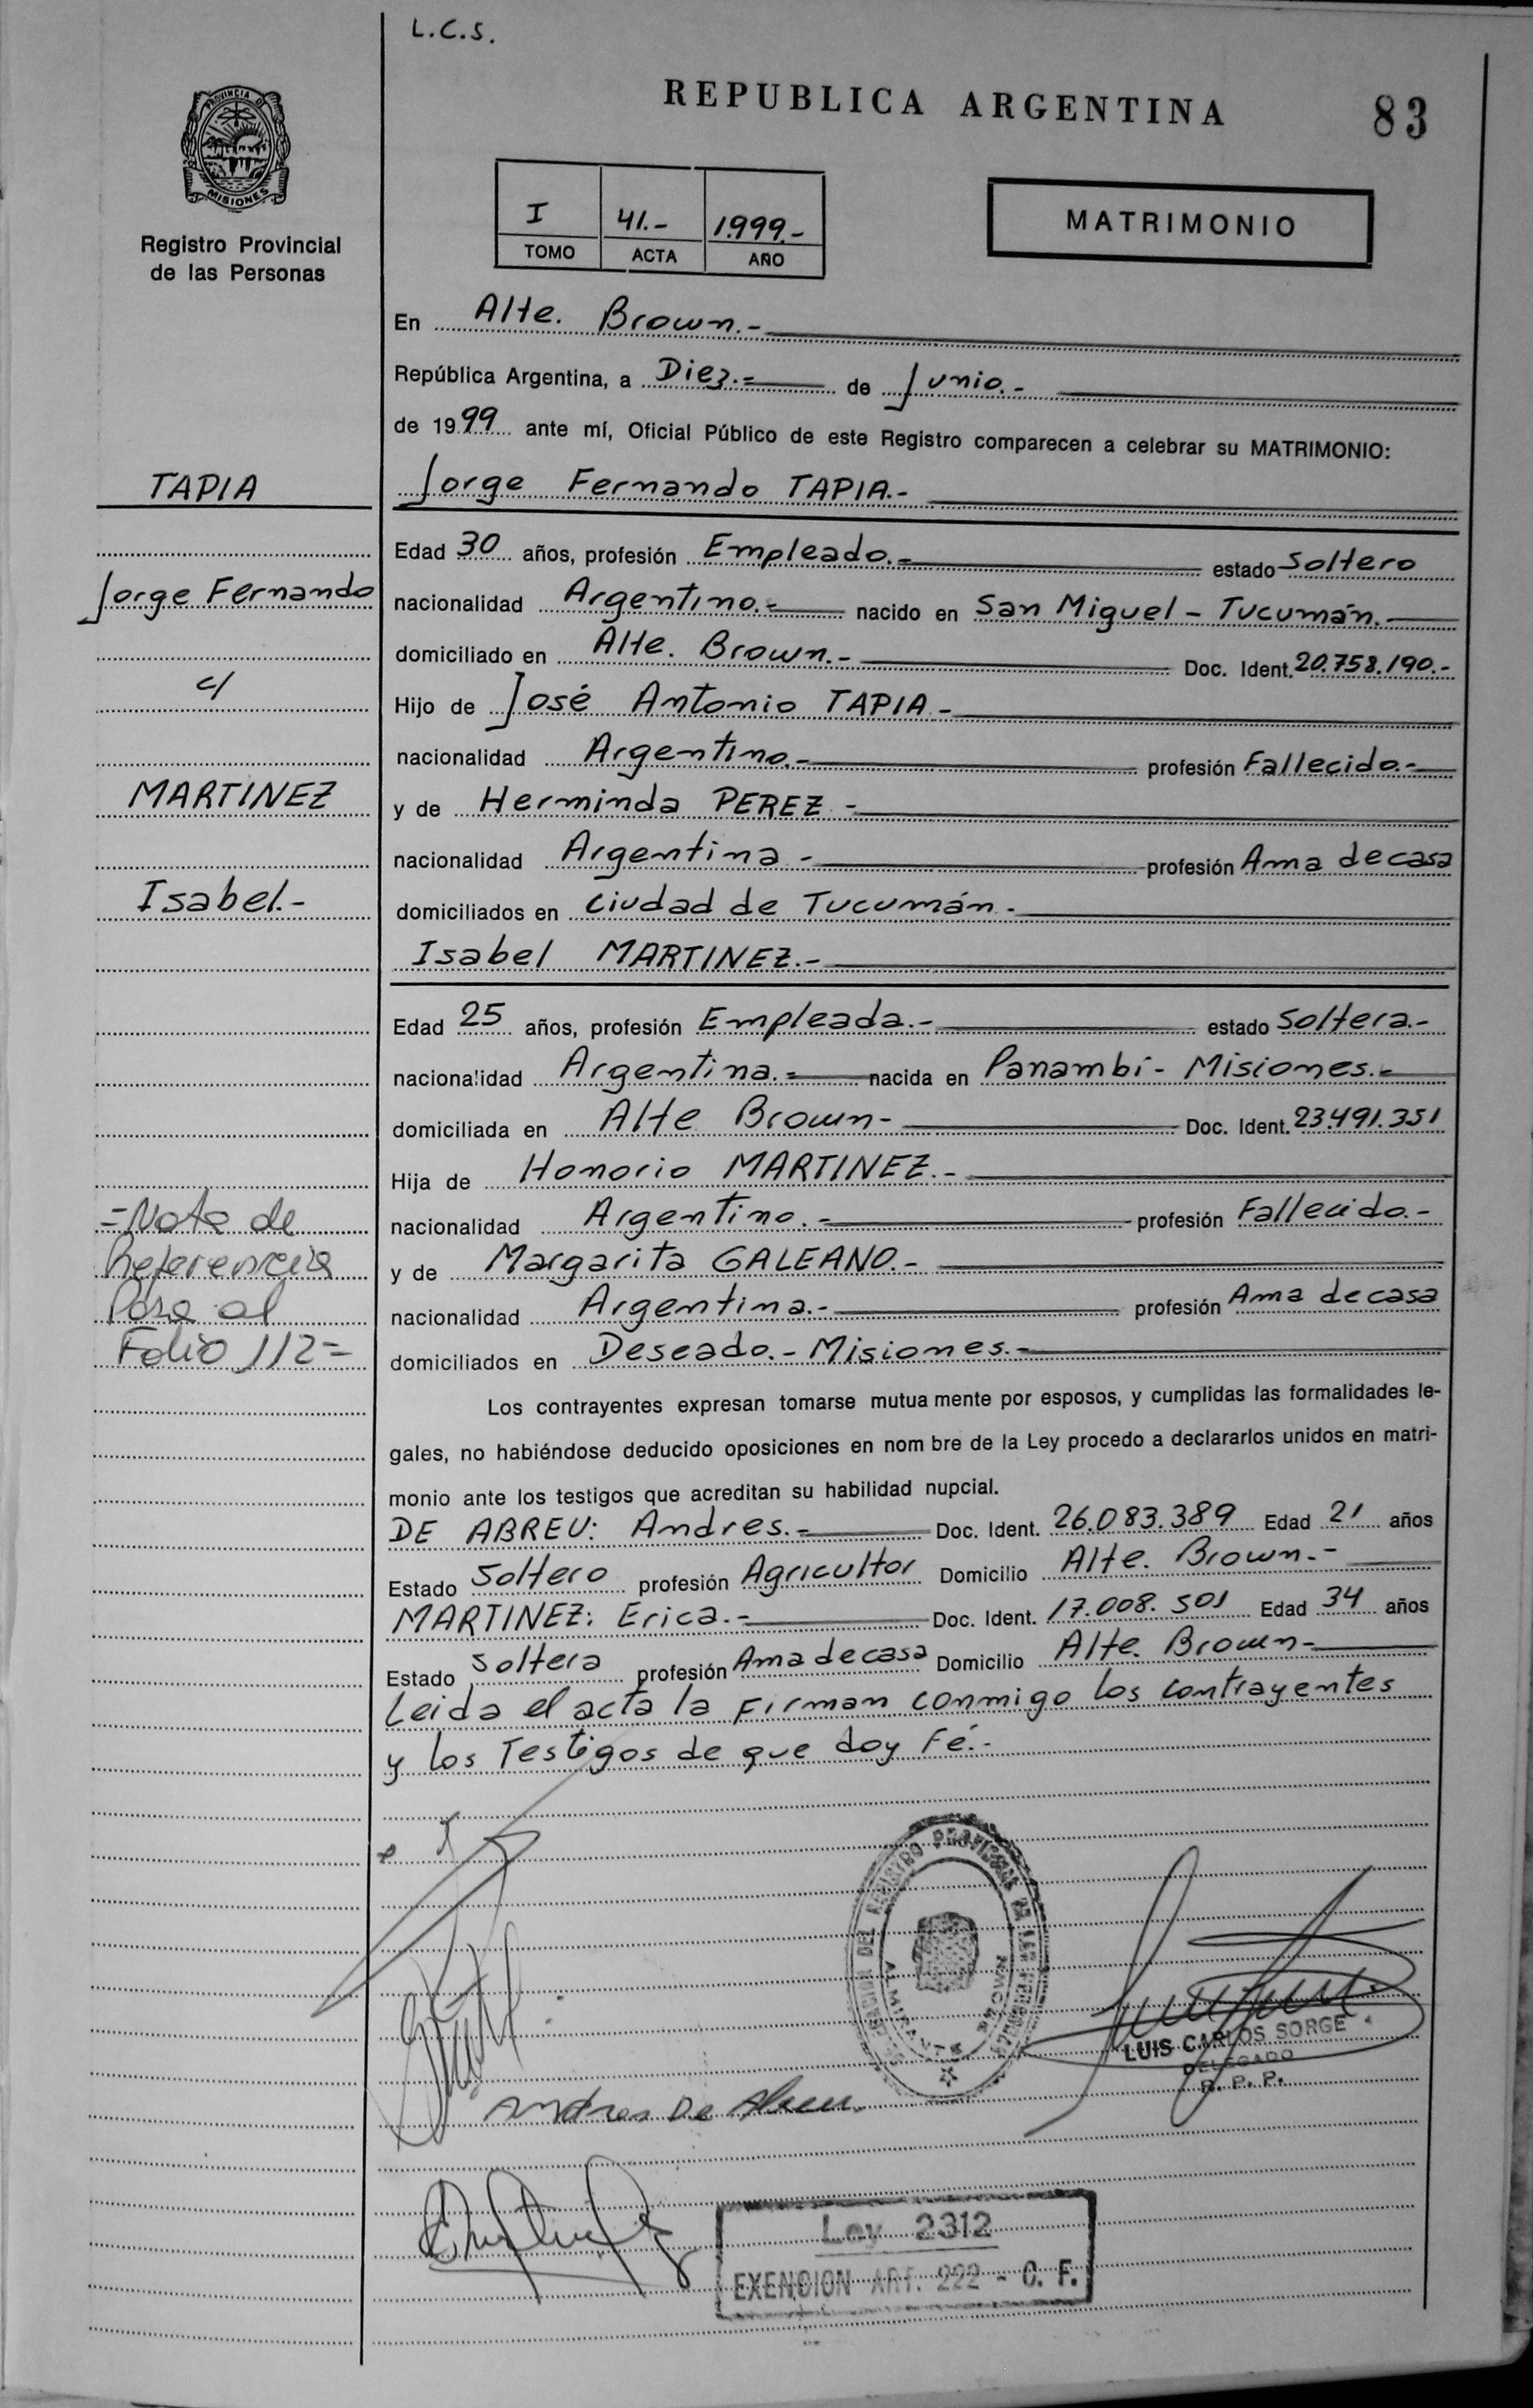 L.C.S.
REPUBLICA ARGENTINA
83
PROVINCIA D
MISIONES
Registro Provincial
de las Personas
I 41.- 1.999.-
TOMO ACTA AÑO
MATRIMONIO
En Alte. Brown.-
República Argentina, a Diez.- de Junio.-
de 1999 ante mí, Oficial Público de este Registro comparecen a celebrar su MATRIMONIO:
TAPIA
Jorge Fernando TAPIA.-
Edad 30 años, profesión Empleado.- estado Soltero
Jorge Fernando
nacionalidad Argentino.- nacido en San Miguel - Tucumán.
domiciliado en Alte. Brown.- Doc. Ident. 20.758.190.-
c/
Hijo de José Antonio TAPIA -
nacionalidad Argentino.- profesión Fallecido.-
MARTINEZ
y de Herminda PEREZ -
nacionalidad Argentina - profesión Ama de casa
Isabel.-
domiciliados en Ciudad de Tucumán.-
Isabel MARTINEZ.-
Edad 25 años, profesión Empleada.- estado Soltera.-
nacionalidad Argentina.- nacida en Panambí - Misiones.-
domiciliada en Alte Brown- Doc. Ident. 23.491.351
Hija de Honorio MARTINEZ.-
=Nota de
nacionalidad Argentino.- profesión Fallecido.-
Referencia
y de Margarita GALEANO.-
Pasa al
nacionalidad Argentina.- profesión Ama de casa
Folio 112=
domiciliados en Deseado.- Misiones.-
Los contrayentes expresan tomarse mutua mente por esposos, y cumplidas las formalidades le-
gales, no habiéndose deducido oposiciones en nom bre de la Ley procedo a declararlos unidos en matri-
monio ante los testigos que acreditan su habilidad nupcial.
DE ABREU: Andres.- Doc. Ident. 26.083.389 Edad 21 años
Estado Soltero profesión Agricultor Domicilio Alte. Brown.-
MARTINEZ: Erica.- Doc. Ident. 17.008.501 Edad 34 años
Estado Soltera profesión Ama de casa Domicilio Alte. Brown-
Leida el acta la Firman conmigo los contrayentes
y los Testigos de que doy Fé.-
DEL REGISTRO PROVINCIAL DE LAS PERSONAS
ALMIRANTE BROWN
LUIS CARLOS SORGE
DELEGADO
R. P. P.
Andres De Abreu.
Ley 2312
EXENCION ART. 222 - C. F.